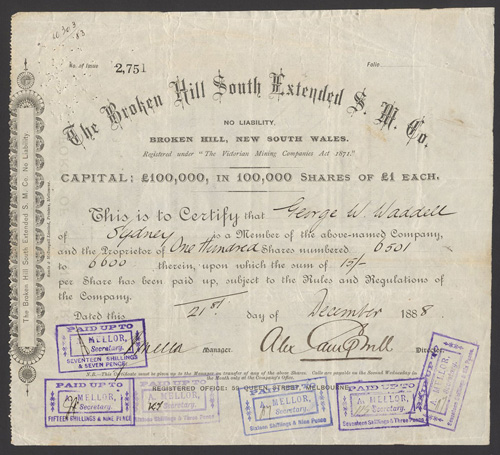 No. of Issue 2,751
Folio
The Broken Hill South Extended S. M. Co.
NO LIABILITY,
BROKEN HILL, NEW SOUTH WALES.
Registered under "The Victorian Mining Companies Act 1871."
CAPITAL: £100,000, IN 100,000 SHARES OF £1 EACH.
This is to Certify that George W. Waddell
of Sydney is a Member of the above-named Company,
and the Proprietor of One Hundred Shares numbered 6501
to 6600 therein, upon which the sum of 15/-
per Share has been paid up, subject to the Rules and Regulations of
the Company.
Dated this 21st day of December 1888.
Manager. Alex Campbell Director
N.B.—This Certificate must be given up to the Manager on transfer of any of the above Shares. Calls are payable on the Second Wednesday in
the Month only at the Company's Office.
REGISTERED OFFICE: 59 QUEEN STREET, MELBOURNE
The Broken Hill South Extended S. M. Co. No Liability.
PAID UP TO
A. MELLOR,
Secretary.
SEVENTEEN SHILLINGS
& SEVEN PENCE
PAID UP TO
A. MELLOR,
Secretary.
FIFTEEN SHILLINGS & NINE PENCE
PAID UP TO
A. MELLOR,
Secretary.
Shillings & Three Pence
Sixteen Shillings & Nine Pence
PAID UP TO
A. MELLOR,
Secretary.
Seventeen Shillings & Three Pence
PAID UP TO
A. MELLOR,
Secretary.